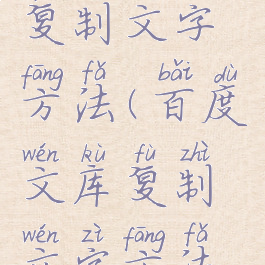 复制文字
fāng fǎ bǎi dù
方法(百度
wén kù fù zhì
文库复制
wén zì fāng fǎ
文字方法